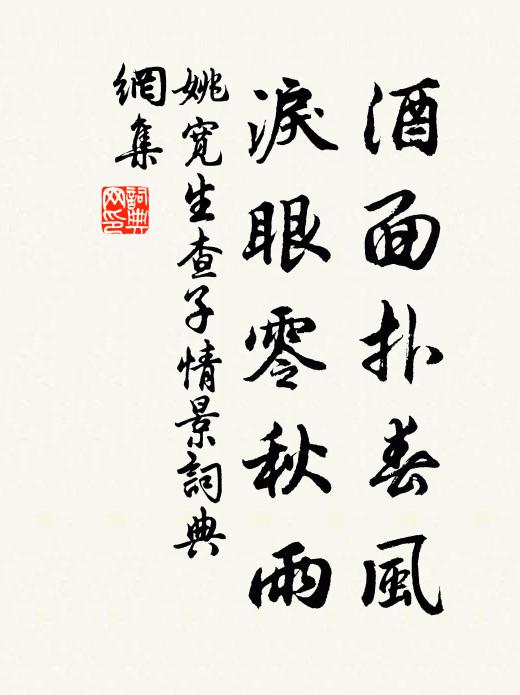 酒面扑春風
淚眼零秋雨
姚寬生查子情景詞典
網集
詞典
网印